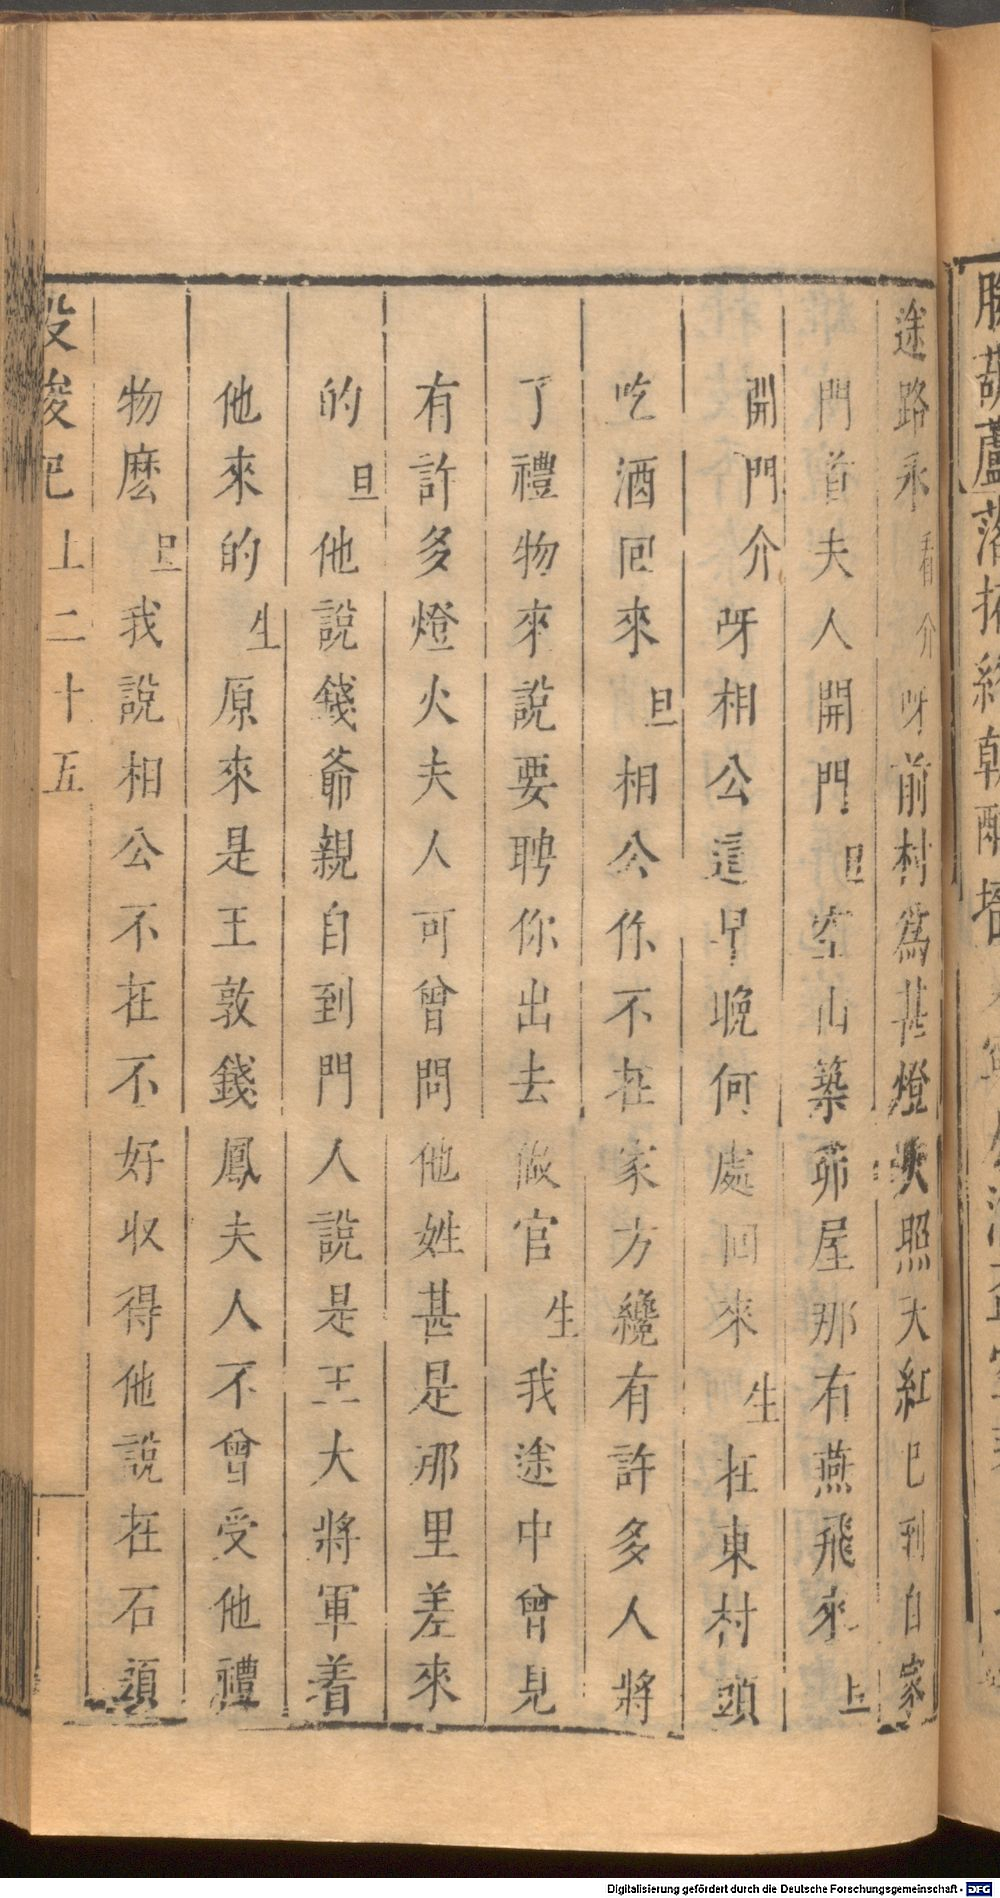 途路永看介呀前村爲甚燈火照天紅已到自家
門首夫人開門旦空山築茆屋那有燕飛來上
開門介呀相公這早晚何處回來生在東村頭
吃酒回來旦相公你不在家方纔有許多人將
了禮物來說要聘你出去做官生我途中曾見
有許多燈火夫人可曾問他姓甚是那里差來
的旦他說錢爺親自到門人說是王大將軍着
他來的生原來是王敦錢鳳夫人不曾受他禮
物麽旦我說相公不在不好收得他說在石頭
投梭記上二十五
葫蘆落
Digitalisierung gefördert durch die Deutsche Forschungsgemeinschaft - DFG